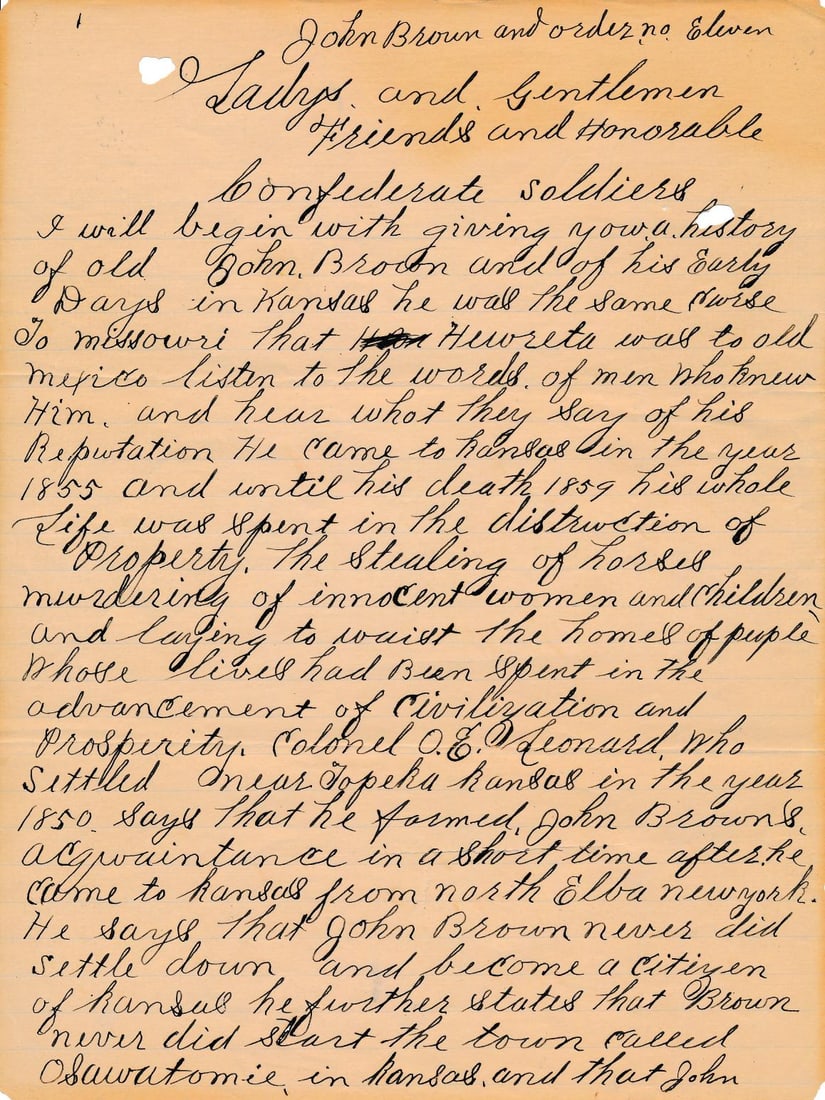 1
John Brown and order no. Eleven
Ladys. and. Gentlemen
Friends and Honorable
Confederate soldiers
I will begin with giving you.a. history
of old John. Brown and of his Early
Days in Kansas he was the same Curse
To missouri that Heureta was to old
mexico listen to the words. of men Who knew
Him. and hear whot they say of his
Reputation He came to Kansas in the year
1855 and until his death 1859 his whole
Life was spent in the distruction of
Property. the Stealing of horses
murdering of innocent women and Children,
and laying to waist the homes of puple
Whose lives had Been spent in the
advancement of Civilization and
Prosperity. Colonel O.E. Leonard. Who
Settled near Topeka Kansas in the year
1850. says that he formed. John Brown's.
acquaintance in a short time after.he
came to Kansas from north Elba newyork.
He says that John Brown never did
settle down and become a citizen
of Kansas he further states that Brown
never did start the town called
Osawatomie, in Kansas. and that John